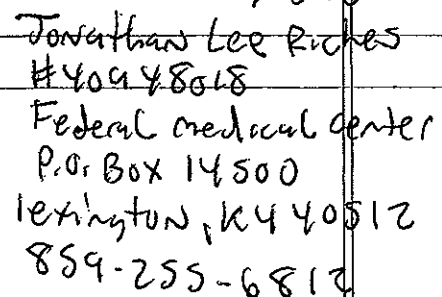 Jonathan Lee Riches
#40948018
Federal medical center
P.O. Box 14500
lexington, KY 40512
859-255-6812